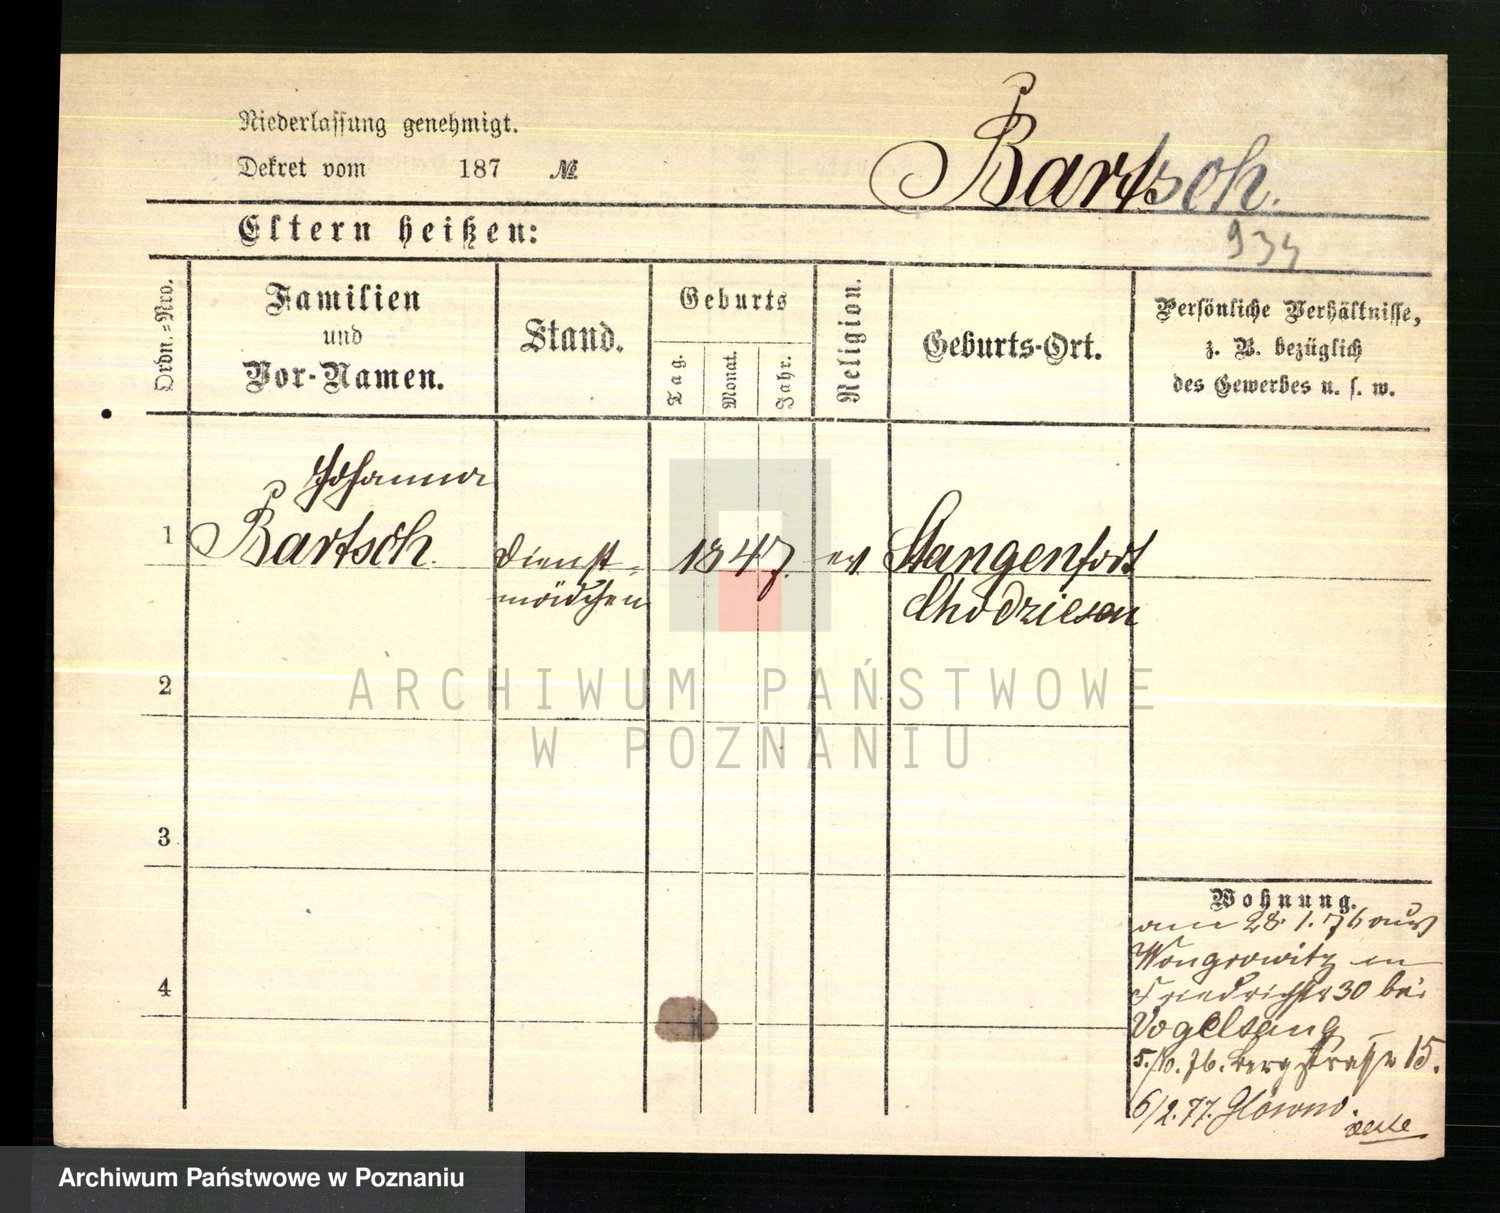 Niederlassung genehmigt.
Dekret vom 187 №
Bartsch.
934
Eltern heißen:
Ordn.-Nro.
Familien
und
Vor-Namen.
Stand.
Geburts
Tag.
Monat.
Jahr.
Religion.
Geburts-Ort.
Persönliche Verhältnisse,
z. B. bezüglich
des Gewerbes u. s. w.
Johanna
1 Bartsch. Dienst- 1847. ev Stangenfort
mädchen Chodziesen
2
ARCHIWUM PAŃSTWOWE
W POZNANIU
3
4
Wohnung.
am 28. 1. 76 aus
Wongrowitz in
Friedrichstr 30 bei
Vogelsang
5./10. 76. Bergstrasse 15.
6/2. 77. Glowno.
Archiwum Państwowe w Poznaniu